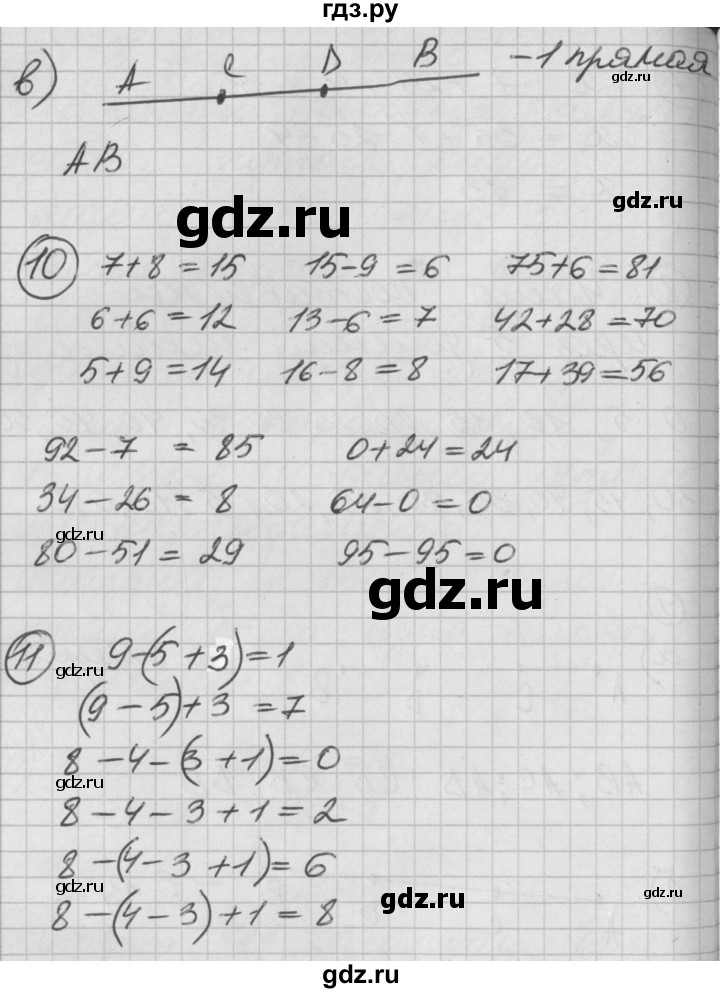 гдз.ру
в) A C D B – 1 прямая
gdz.ru
AB
gdz.ru
gdz.ru
10 7+8=15 15-9=6 75+6=81
6+6=12 13-6=7 42+28=70
5+9=14 16-8=8 17+39=56
92-7=85 0+24=24
34-26=8 64-0=0
gdz.ru
80-51=29 95-95=0
gdz.ru
11 9-(5+3)=1
gdz.ru
(9-5)+3=7
8-4-(3+1)=0
gdz.ru
8-4-3+1=2
8-(4-3+1)=6
gdz.ru
gdz.ru
gdz.ru
8-(4-3)+1=8
gdz.ru